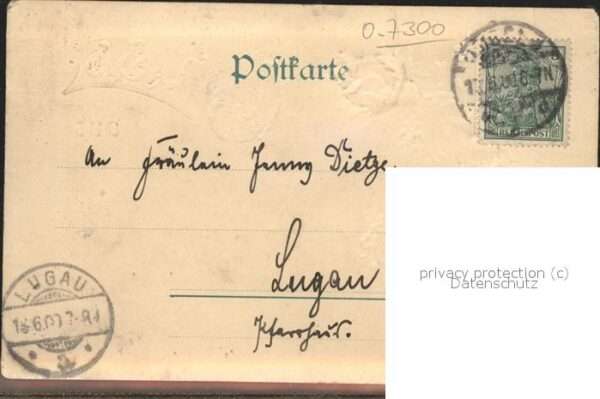 0-7300
Postkarte
An Fräulein Jenny Dietze.
Lugau
Pfarrhaus.
LUGAU
a
REICHSPOST
privacy protection (c)
Datenschutz